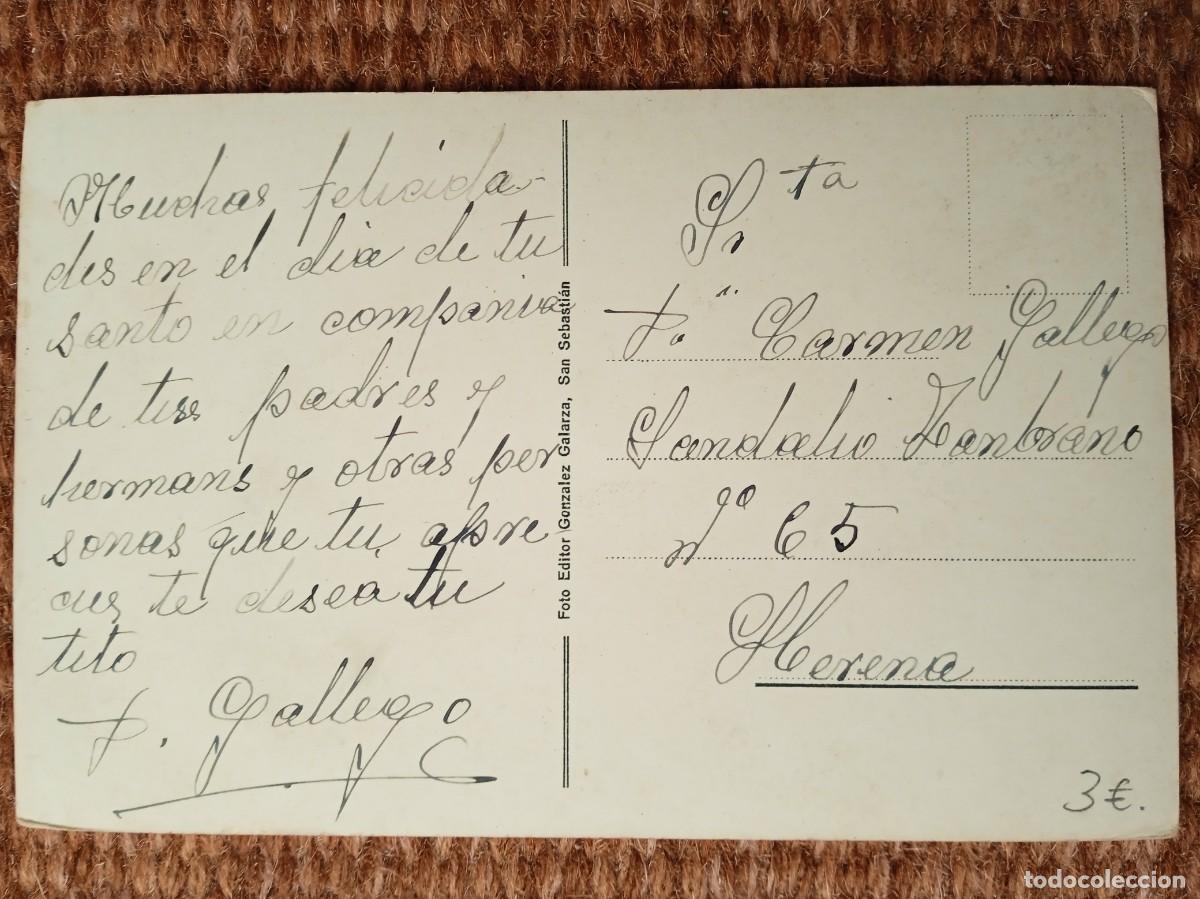 Muchas felicida-
des en el dia de tu
santo en compania
de tus padres y
hermans y otras per
sonas que tu apre
cies te desea tu
tito
F. Gallego
Foto Editor Gonzalez Galarza, San Sebastián
Srta
Carmen Gallego
Sandalio Zanbrano
nº 65
Llerena
3€.
todocoleccion